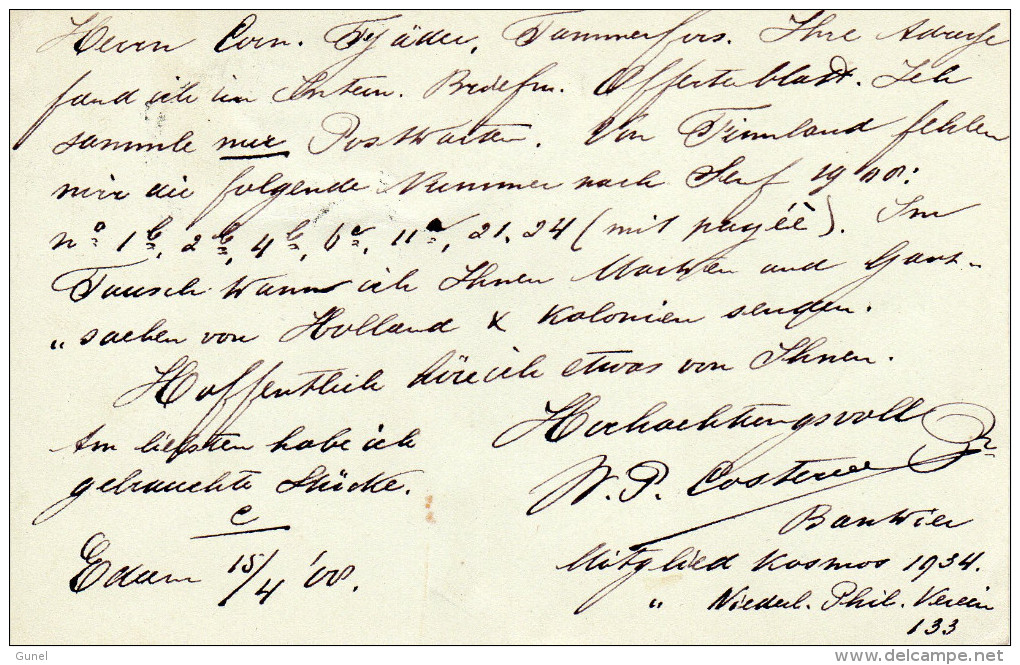 Herrn Corn. Tjäder, Tammerfors. Ihre Adresse
fand ich im Intern. Briefm. Offertenblatt. Ich
sammle nur Postkarten. Von Finnland fehlen
mir die folgende Nummer nach Senf 1908:
nº 1b, 2b, 4b, 6a, 11a, 21, 24 (mit payéé). Im
Tausch kann ich Ihnen Marken und Ganz-
„ sachen von Holland & Kolonien senden.
Hoffentlich höre ich etwas von Ihnen.
Am liebsten habe ich
gebrauchte Stücke.
Hochachtungsvoll
W. P. Costerus
Bankier
Edam 15/4 '08.
Mitglied Kosmos 1934.
„ Niederl. Phil. Verein
133
Gunel
www.delcampe.net